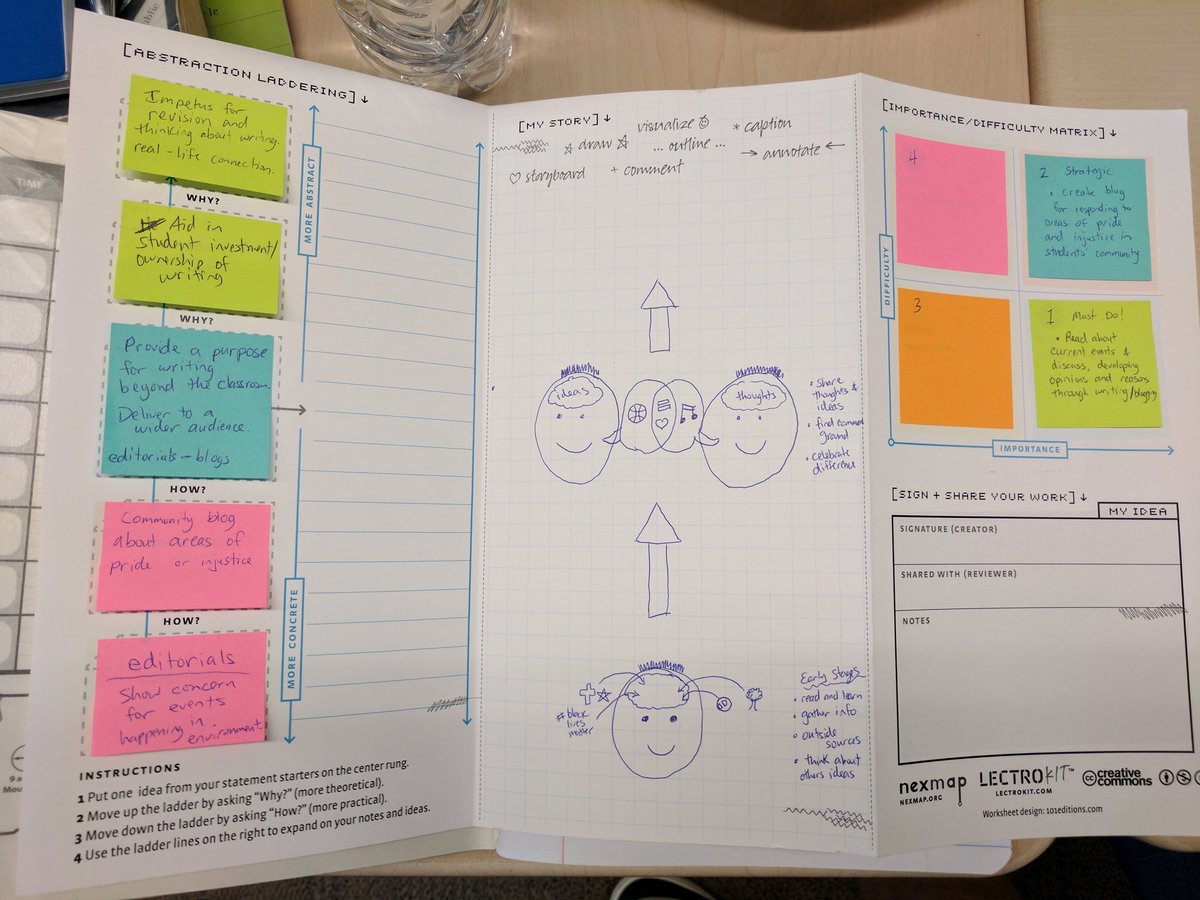 [ABSTRACTION LADDERING]↓
Impetus for
revision and
thinking about writing.
real-life connection.
WHY?
Aid in
student investment/
ownership of
writing
WHY?
Provide a purpose
for writing
beyond the classroom.
Deliver to a
wider audience.
editorials - blogs
HOW?
Community blog
about areas of
pride or injustice
HOW?
editorials
Show concern
for events
happening in
environment.
MORE ABSTRACT
MORE CONCRETE
INSTRUCTIONS
1 Put one idea from your statement starters on the center rung.
2 Move up the ladder by asking “Why?” (more theoretical).
3 Move down the ladder by asking “How?” (more practical).
4 Use the ladder lines on the right to expand on your notes and ideas.
[MY STORY]↓
visualize
* caption
☆ draw ☆
... outline ...
→ annotate ←
♡ storyboard
+ comment
ideas
thoughts
• share
thoughts &
ideas
• find common
ground
• celebrate
difference
#black
lives
matter
Early Stages
• read and learn
• gather info
• outside
sources
• think about
others ideas
[IMPORTANCE/DIFFICULTY MATRIX]↓
4
2 Strategic
• create blog
for responding to
areas of pride
and injustice in
students' community
3
1 Must Do!
• Read about
current events &
discuss, developing
opinions and reasons
through writing/blogging
DIFFICULTY
IMPORTANCE
[SIGN + SHARE YOUR WORK]↓
MY IDEA
SIGNATURE (CREATOR)
SHARED WITH (REVIEWER)
NOTES
nexmap
NEXMAP.ORG
LECTROKIT™
LECTROKIT.COM
cc creative commons
Worksheet design: 101editions.com
TIME